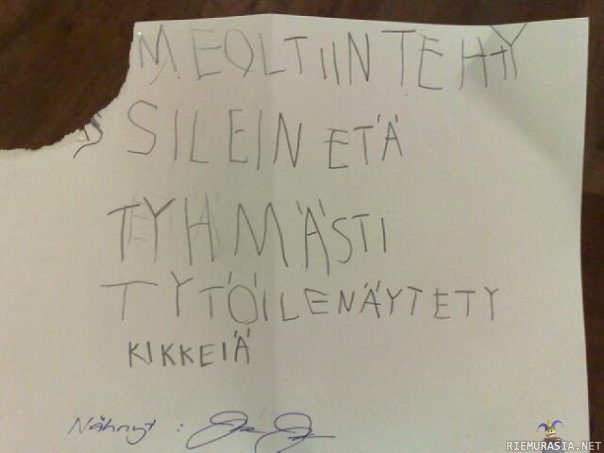 MEOLTIIN TEHTY
SILEIN ETÄ
TYHMÄSTI
TYTÖILENÄYTETY
KIKKEIÄ
Nähnyt :
RIEMURASIA.NET